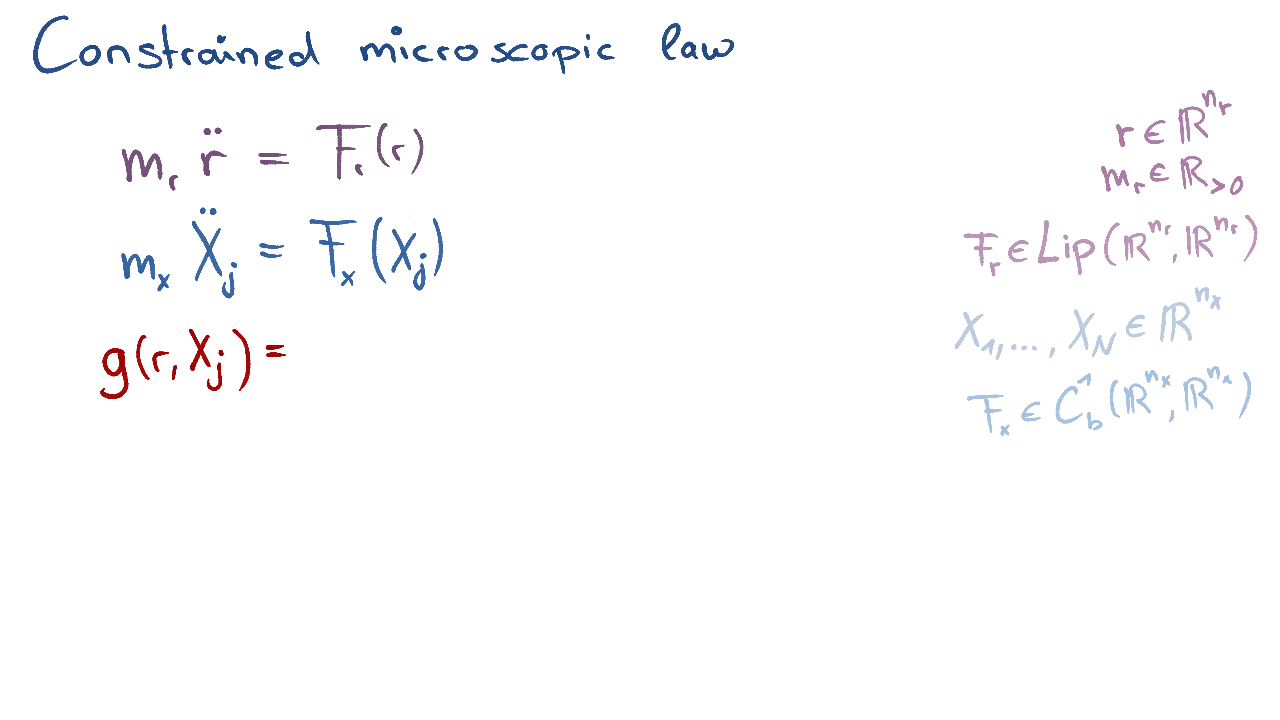 Constrained microscopic law
m_r r̈ = F_r(r)
m_x Ẍ_j = F_x(X_j)
g(r, X_j) =
r ∈ ℝ^{n_r}
m_r ∈ ℝ_{>0}
F_r ∈ Lip(ℝ^{n_r}, ℝ^{n_r})
X_1, ..., X_N ∈ ℝ^{n_x}
F_x ∈ C_b^1(ℝ^{n_x}, ℝ^{n_x})